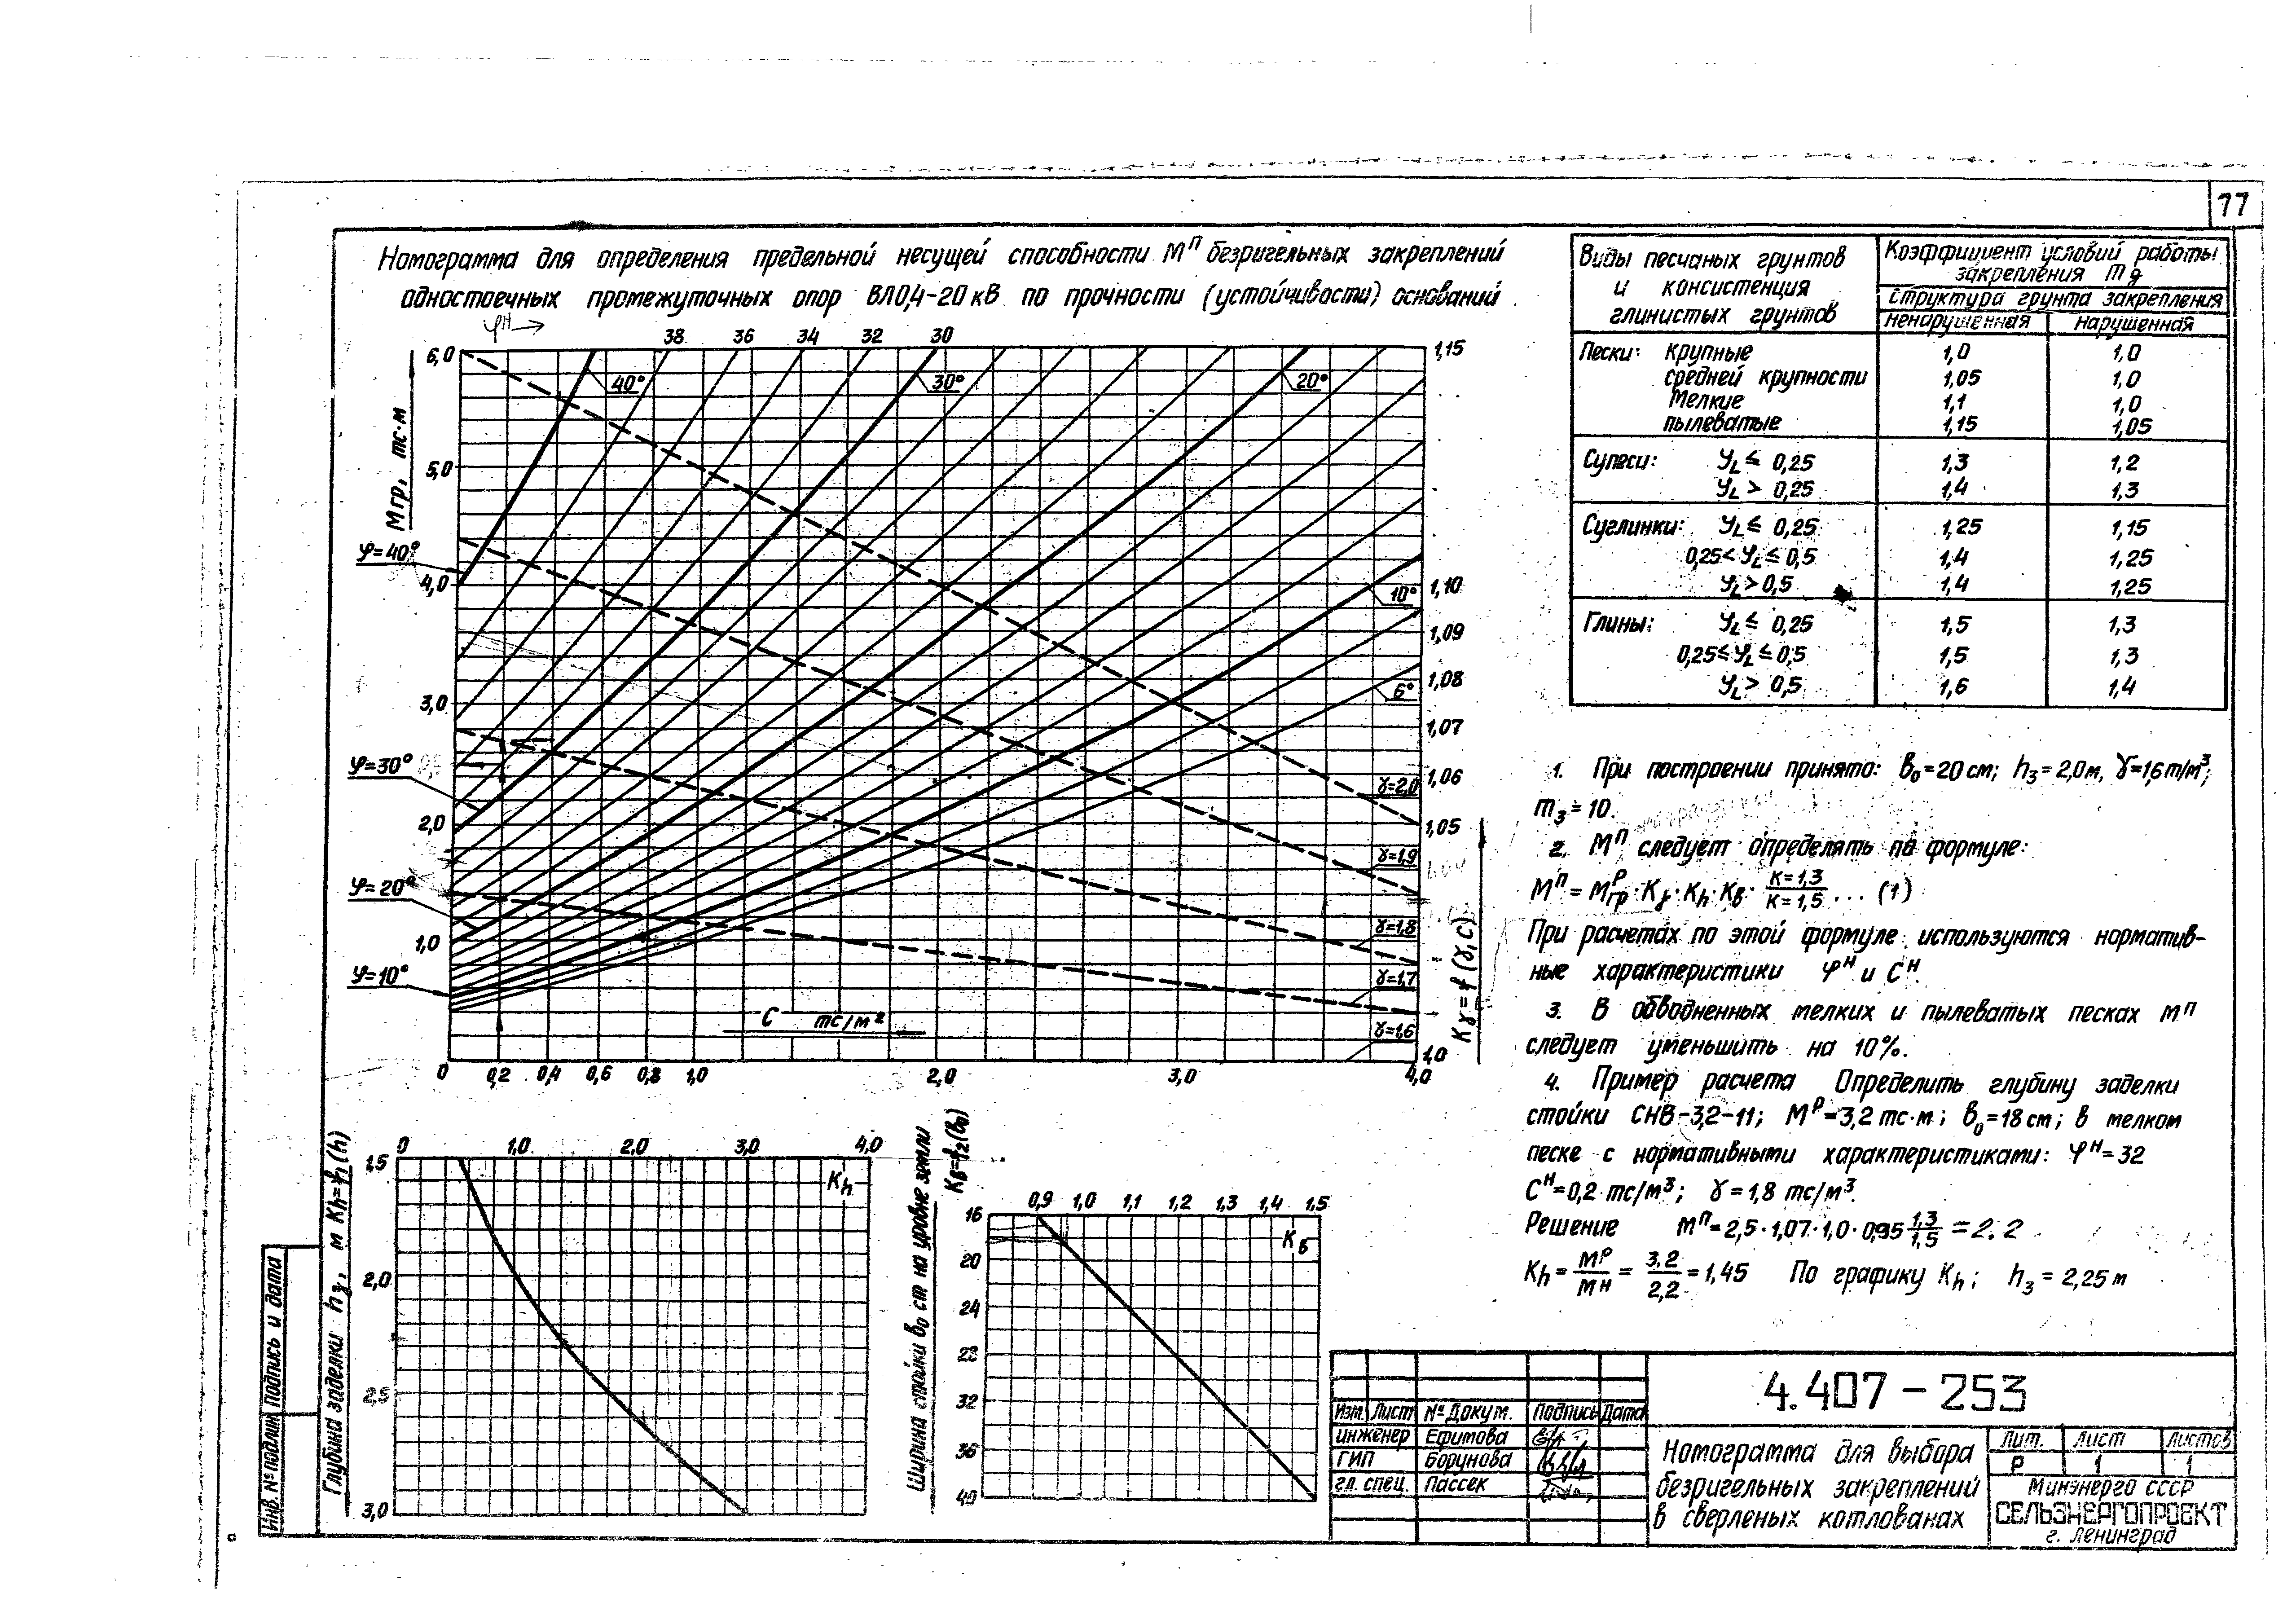 77
Номограмма для определения предельной несущей способности Мп безригельных закреплений
одностоечных промежуточных опор ВЛ0,4-20 кВ по прочности (устойчивости) оснований
φН →
38 36 34 32 30
6,0
5,0
4,0
3,0
2,0
1,0
0
Мгр, тс·м
φ=40°
φ=30°
φ=20°
φ=10°
40°
30°
20°
10°
6°
1,15
1,10
1,09
1,08
1,07
1,06
1,05
1,0
γ=2,0
γ=1,9
γ=1,8
γ=1,7
γ=1,6
Kγ=f(γ,C)
C тс/м²
0,2 0,4 0,6 0,8 1,0 2,0 3,0 4,0
Глубина заделки hз, м Kh=f1(h)
0 1,0 2,0 3,0 4,0
1,5
2,0
2,5
3,0
Kh
Ширина стойки в0 ст на уровне земли
Kв=f2(в0)
0,9 1,0 1,1 1,2 1,3 1,4 1,5
16
20
24
28
32
36
40
Kв
Виды песчаных грунтов и консистенция глинистых грунтов
Коэффициент условий работы закрепления mд
структура грунта закрепления
ненарушенная нарушенная
Пески: крупные 1,0 1,0
средней крупности 1,05 1,0
мелкие 1,1 1,0
пылеватые 1,15 1,05
Супеси: УL ≤ 0,25 1,3 1,2
УL > 0,25 1,4 1,3
Суглинки: УL ≤ 0,25 1,25 1,15
0,25< УL ≤ 0,5 1,4 1,25
УL > 0,5 1,4 1,25
Глины: УL ≤ 0,25 1,5 1,3
0,25≤ УL ≤ 0,5 1,5 1,3
УL > 0,5 1,6 1,4
1. При построении принято: в0=20 см; hз=2,0м, γ=1,6т/м³;
mз=10.
2. Мп следует определять по формуле:
Мп = Мргр·Kγ·Kh·Kв· K=1,3/K=1,5 ... (1)
При расчетах по этой формуле используются норматив-
ные характеристики φН и СН.
3. В обводненных мелких и пылеватых песках Мп
следует уменьшить на 10%.
4. Пример расчета Определить глубину заделки
стойки СНВ-3,2-11; Мр=3,2 тс·м; в0=18 ст; в мелком
песке с нормативными характеристиками: φН=32
СН=0,2 тс/м³; γ=1,8 тс/м³.
Решение Мп=2,5·1,07·1,0·0,95 1,3/1,5 = 2.2
Kh = Мр/Мн = 3,2/2,2 = 1,45 По графику Kh; hз = 2,25 м
4.407-253
Изм. Лист № Докум. Подпись Дата
инженер Ефимова
ГИП Борунова
гл. спец. Пассек
Номограмма для выбора
безригельных закреплений
в сверленых котлованах
Лит. Лист Листов
Р 1 1
Минэнерго СССР
СЕЛЬЭНЕРГОПРОЕКТ
г. Ленинград
Инв. № подлин Подпись и дата